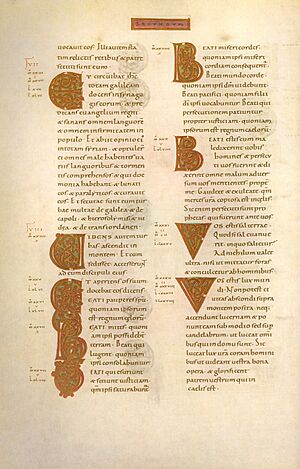 SECUNDUM
uocauit eos Illi autem sta
tim relictis retibus & patre
secuti sunt eum
Et circuibat ihs
totam galileam
docens in synago
gis eorum & prae
dicans euangelium regni
& sanans omnem languorē
& omnem infirmitatem in
populo Et abiit opinio ei'
in totam syriam & optuler
ei omnes male habentes ua
riis languoribus & tormen
tis comprehensos & qui dae
monia habebant & lunati
cos & paralyticos & curauit
eos Et secutae sunt eum tur
bae multae de galilaea & deca
poli & hierosolimis & iu
daea & de trans iordanen
VIDENS autem tur
bas ascendit in
montem Et cum
sedisset accesserunt
ad eum discipuli eius
Et aperiens os suum
docebat eos dicens
BEATI pauperes spu
quoniam ipsorum
est regnum caelorum
BEATI mites quoni
am ipsi possidebt
terram Beati qui
lugent quoniam
ipsi consolabuntur
BEATI qui esuriunt
& sitiunt iustitiam
qm ipsi saturabunt
BEATI misericordes
quoniam ipsi miseri
cordiam consequentur
Beati mundo corde
quoniam ipsi dm uidebunt
Beati pacifici quoniam filii
di ipsi uocabuntur Beati qui
persecutionem patiuntur
propter iustitiam quoniam
ipsorum est regnum caelorū
BEATI estis cum ma
ledixerint uobis
homines & persecu
ti uos fuerint & di
xerint omne malum aduer
sum uos mentientes propter
me Gaudete & exultate quo
niam merces uestra copiosa est in caelis
Sic enim persecuti sunt pro
phetas qui fuerunt ante uos
VOS estis sal terrae
Quod si sal euanue
rit in quo salietur
Ad nihilum ualet
ultra nisi ut mittatur foras
& conculcetur ab hominibus
VOS estis lux mun
di Non potest ci
uitas abscondi supra
montem posita neq;
accendunt lucernam & po
nunt eam sub modio sed sup
candelabrum ut luceat omni
bus qui in domo sunt Sic
luceat lux uestra coram homini
bus ut uideant uestra bona
opera & glorificent
patrem uestrum qui in
caelis est